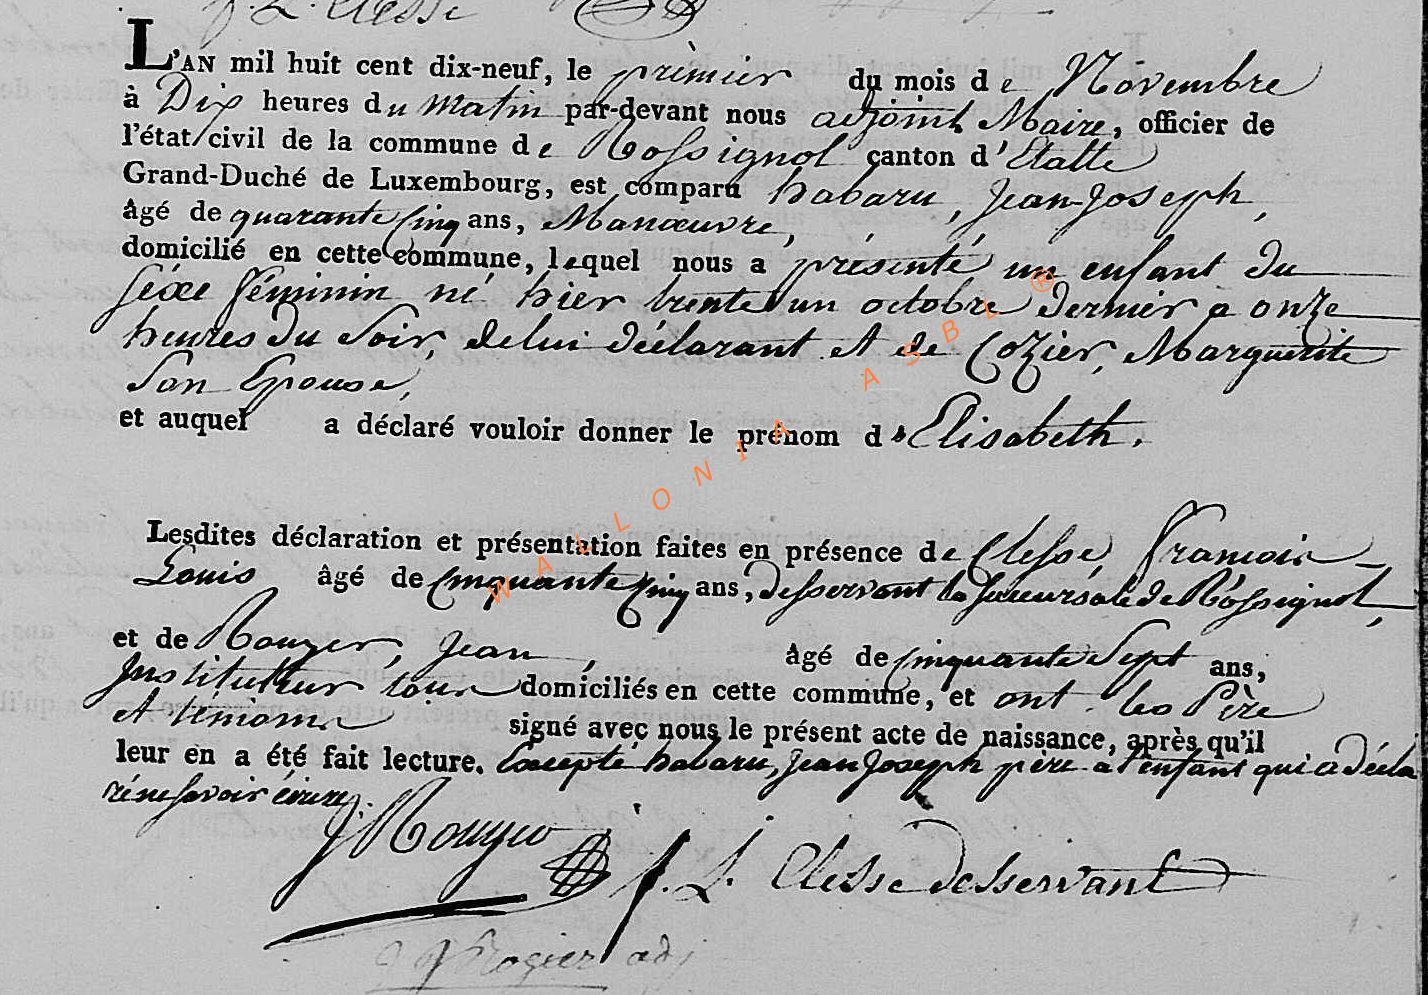 f. L. Clesse
L'AN mil huit cent dix-neuf, le prèmier du mois de Novembre
à Dix heures du matin par-devant nous adjoint Maire, officier de
l'état civil de la commune de Rossignol canton d'Etalle
Grand-Duché de Luxembourg, est comparu habaru, Jean-Joseph,
âgé de quarante cinq ans, Manœuvre,
domicilié en cette commune, lequel nous a présenté un enfant du
séxe féminin né hier trente un octobre dernier a onze
heures du Soir, de lui déclarant et de Cozier, Marguerite
Son Epouse,
et auquel a déclaré vouloir donner le prénom d'Elisabeth.
Lesdites déclaration et présentation faites en présence de Clesse, francois
Louis âgé de cinquante cinq ans, desservant la succursale de Rossignol,
et de Rouyer, Jean, âgé de cinquante Sept ans,
Instituteur tous domiciliés en cette commune, et ont les Père
et témoins signé avec nous le présent acte de naissance, après qu'il
leur en a été fait lecture. Excepté habaru, Jean Joseph père a l'enfant qui a décla
ré ne savoir écrire.
J Rouyer f. L. Clesse desservant
J Rogier adj
WALLONIA ASBL ®